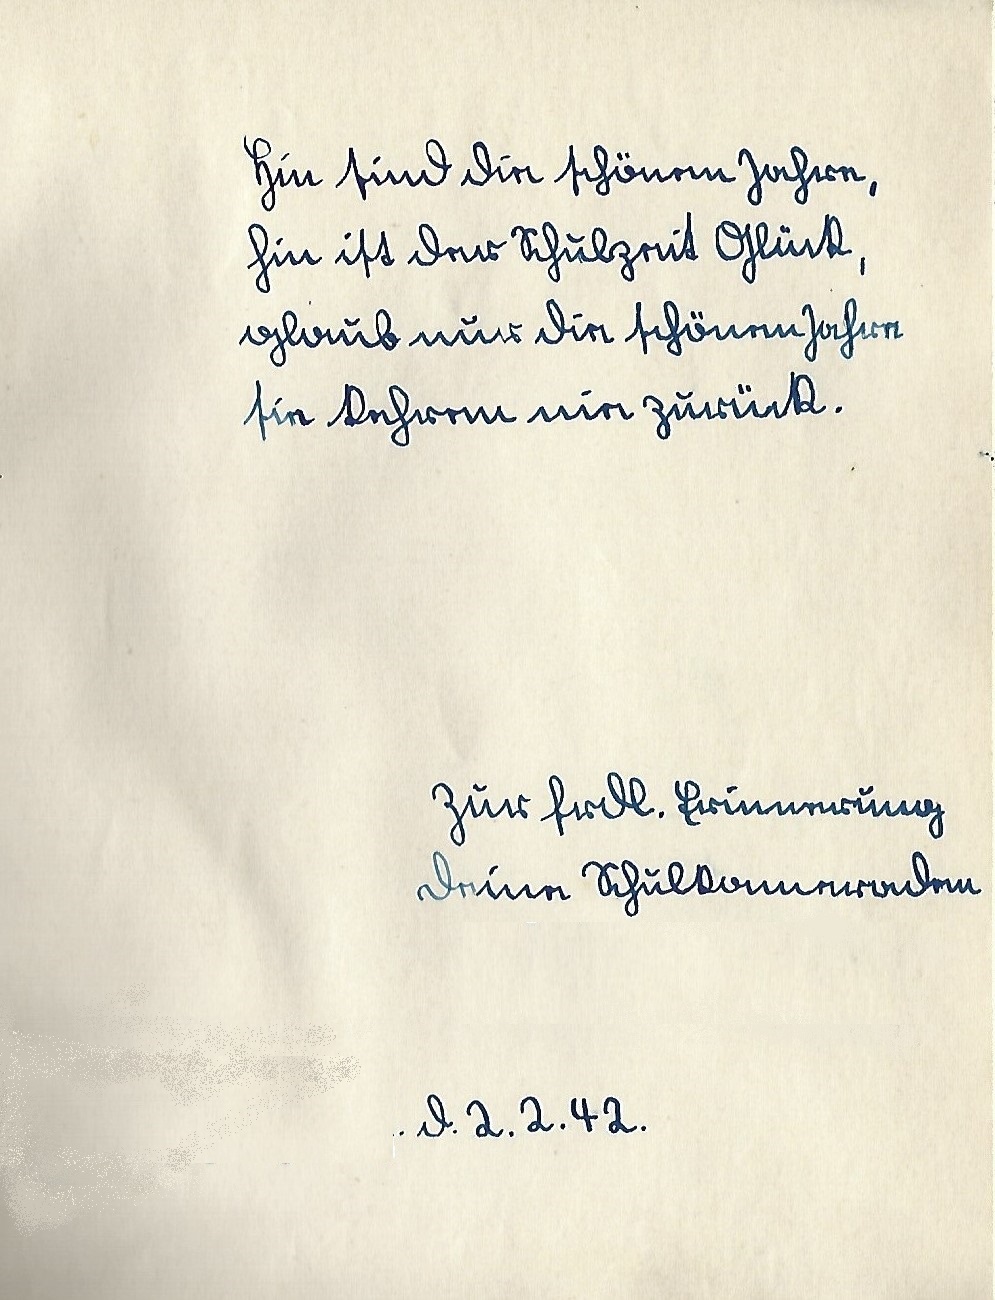 Hin sind die schönen Jahre,
hin ist der Schulzeit Glück,
glaub nur die schönen Jahre
sie kehren nie zurück.
Zur frdl. Erinnerung
deine Schulkameraden
d. 2. 2. 42.